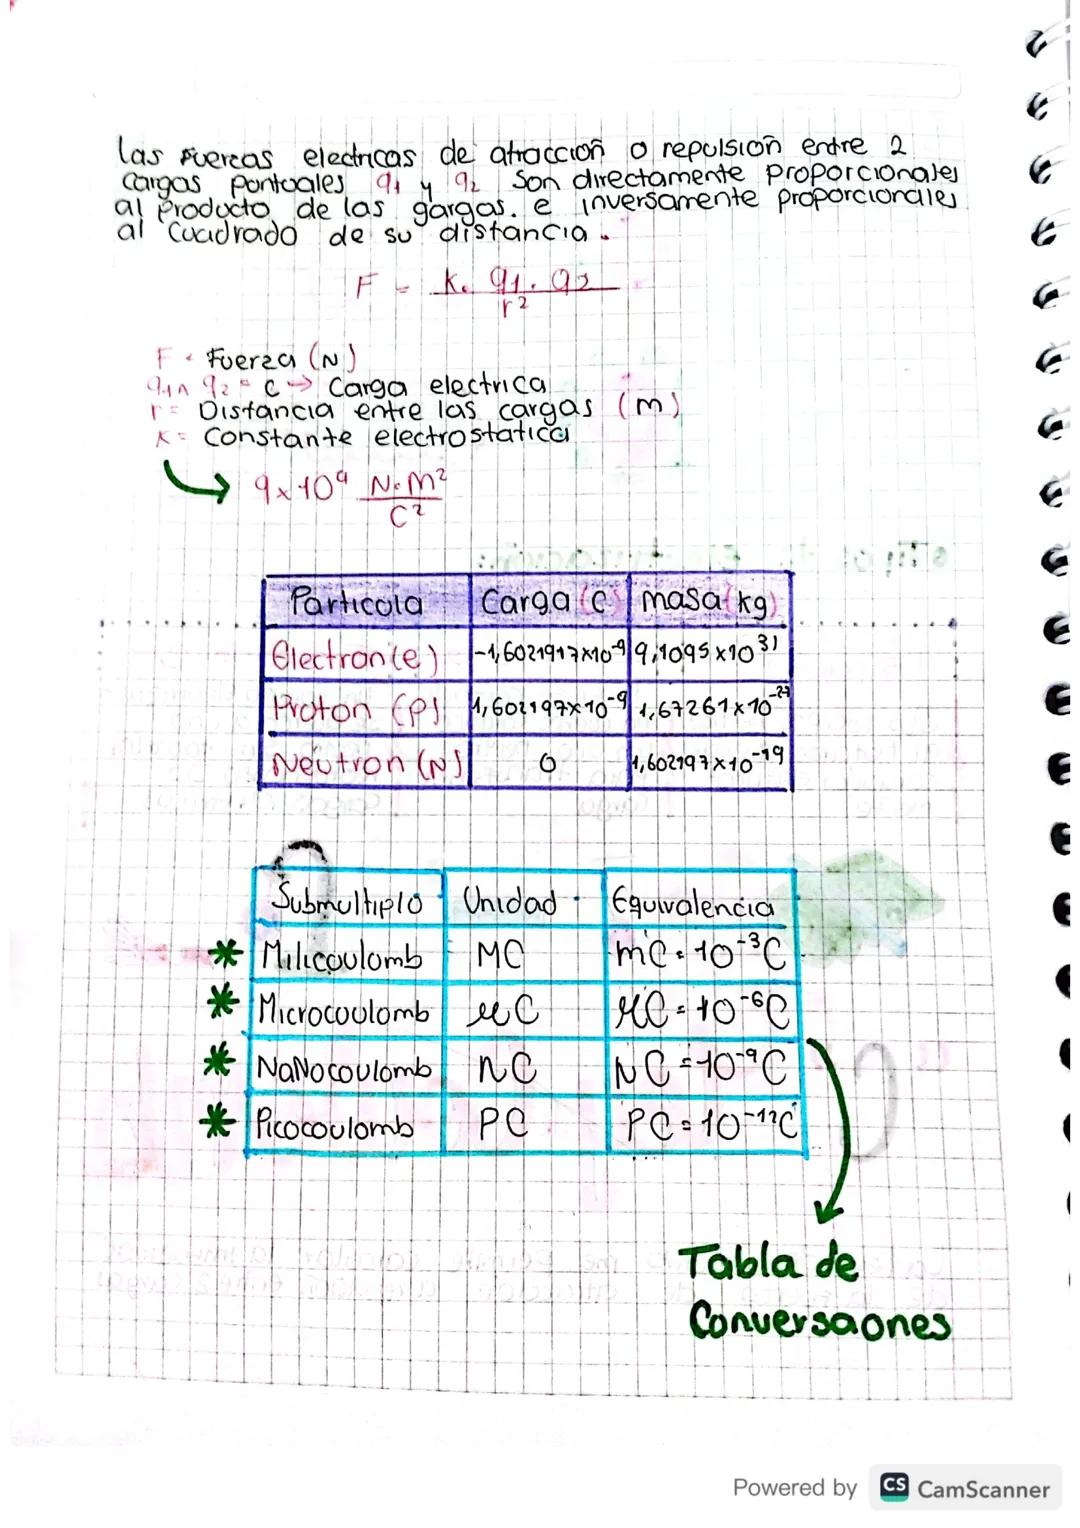 las Fuerzas electricas de atraccioñ o repulsioñ entre 2
Cargas pontuales q1 y q2 Son directamente Proporcionales
al Producto de las gargas. e inversamente proporcionales
al Cuadrado de su distancia.
F = K. q1. q2
r²
F = Fuerza (N)
q1 ∧ q2 = C → Carga electrica
r = Distancia entre las cargas (m)
K = Constante electrostatica
9 x 10⁹ N.m²
C²
Particola Carga (C) masa (kg)
Electron (e) -1,6021917x10⁻⁹ 9,1095 x10³¹
Proton (P) 1,602197x10⁻⁹ 1,67261x10⁻²⁷
Neutron (N) 0 1,602197x10⁻¹⁹
Submultiplo Unidad Equivalencia
* Milicoulomb MC mC = 10⁻³C
* Microcoulomb µC µC = 10⁻⁶C
* NaNocoulomb nC NC = 10⁻⁹C
* Picocoulomb PC PC = 10⁻¹²C
Tabla de
Conversaones
Powered by CS CamScanner